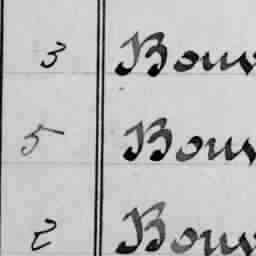 3 Bouv
5 Bouv
2 Bouv